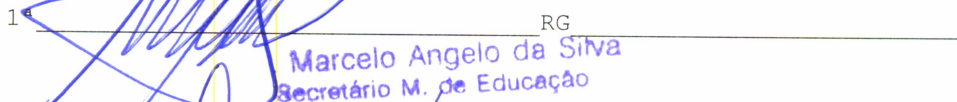 1ª RG
Marcelo Angelo da Silva
Secretário M. de Educação